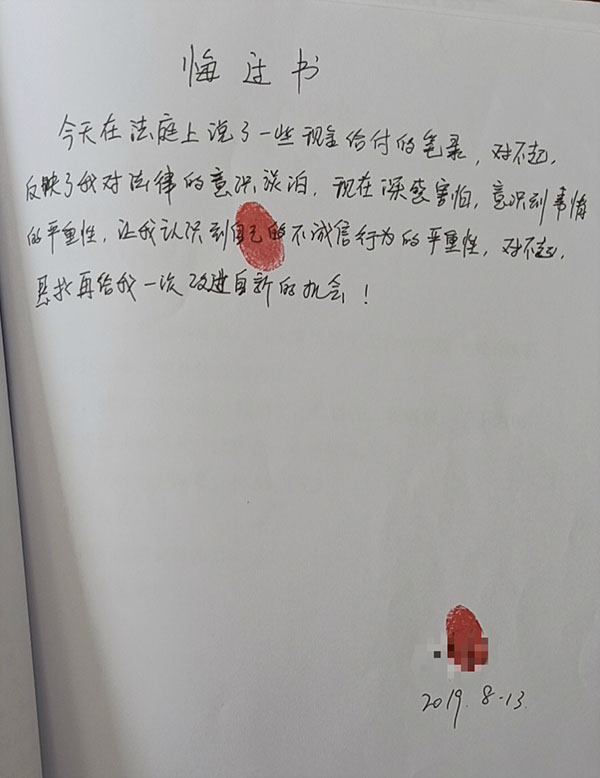 悔过书
今天在法庭上说了一些现金给付的笔录，对不起，
反映了我对法律的意识淡泊，现在深感害怕，意识到事情
的严重性，让我认识到自己的不诚信行为的严重性，对不起，
恳求再给我一次改进自新的机会！
2019.8.13